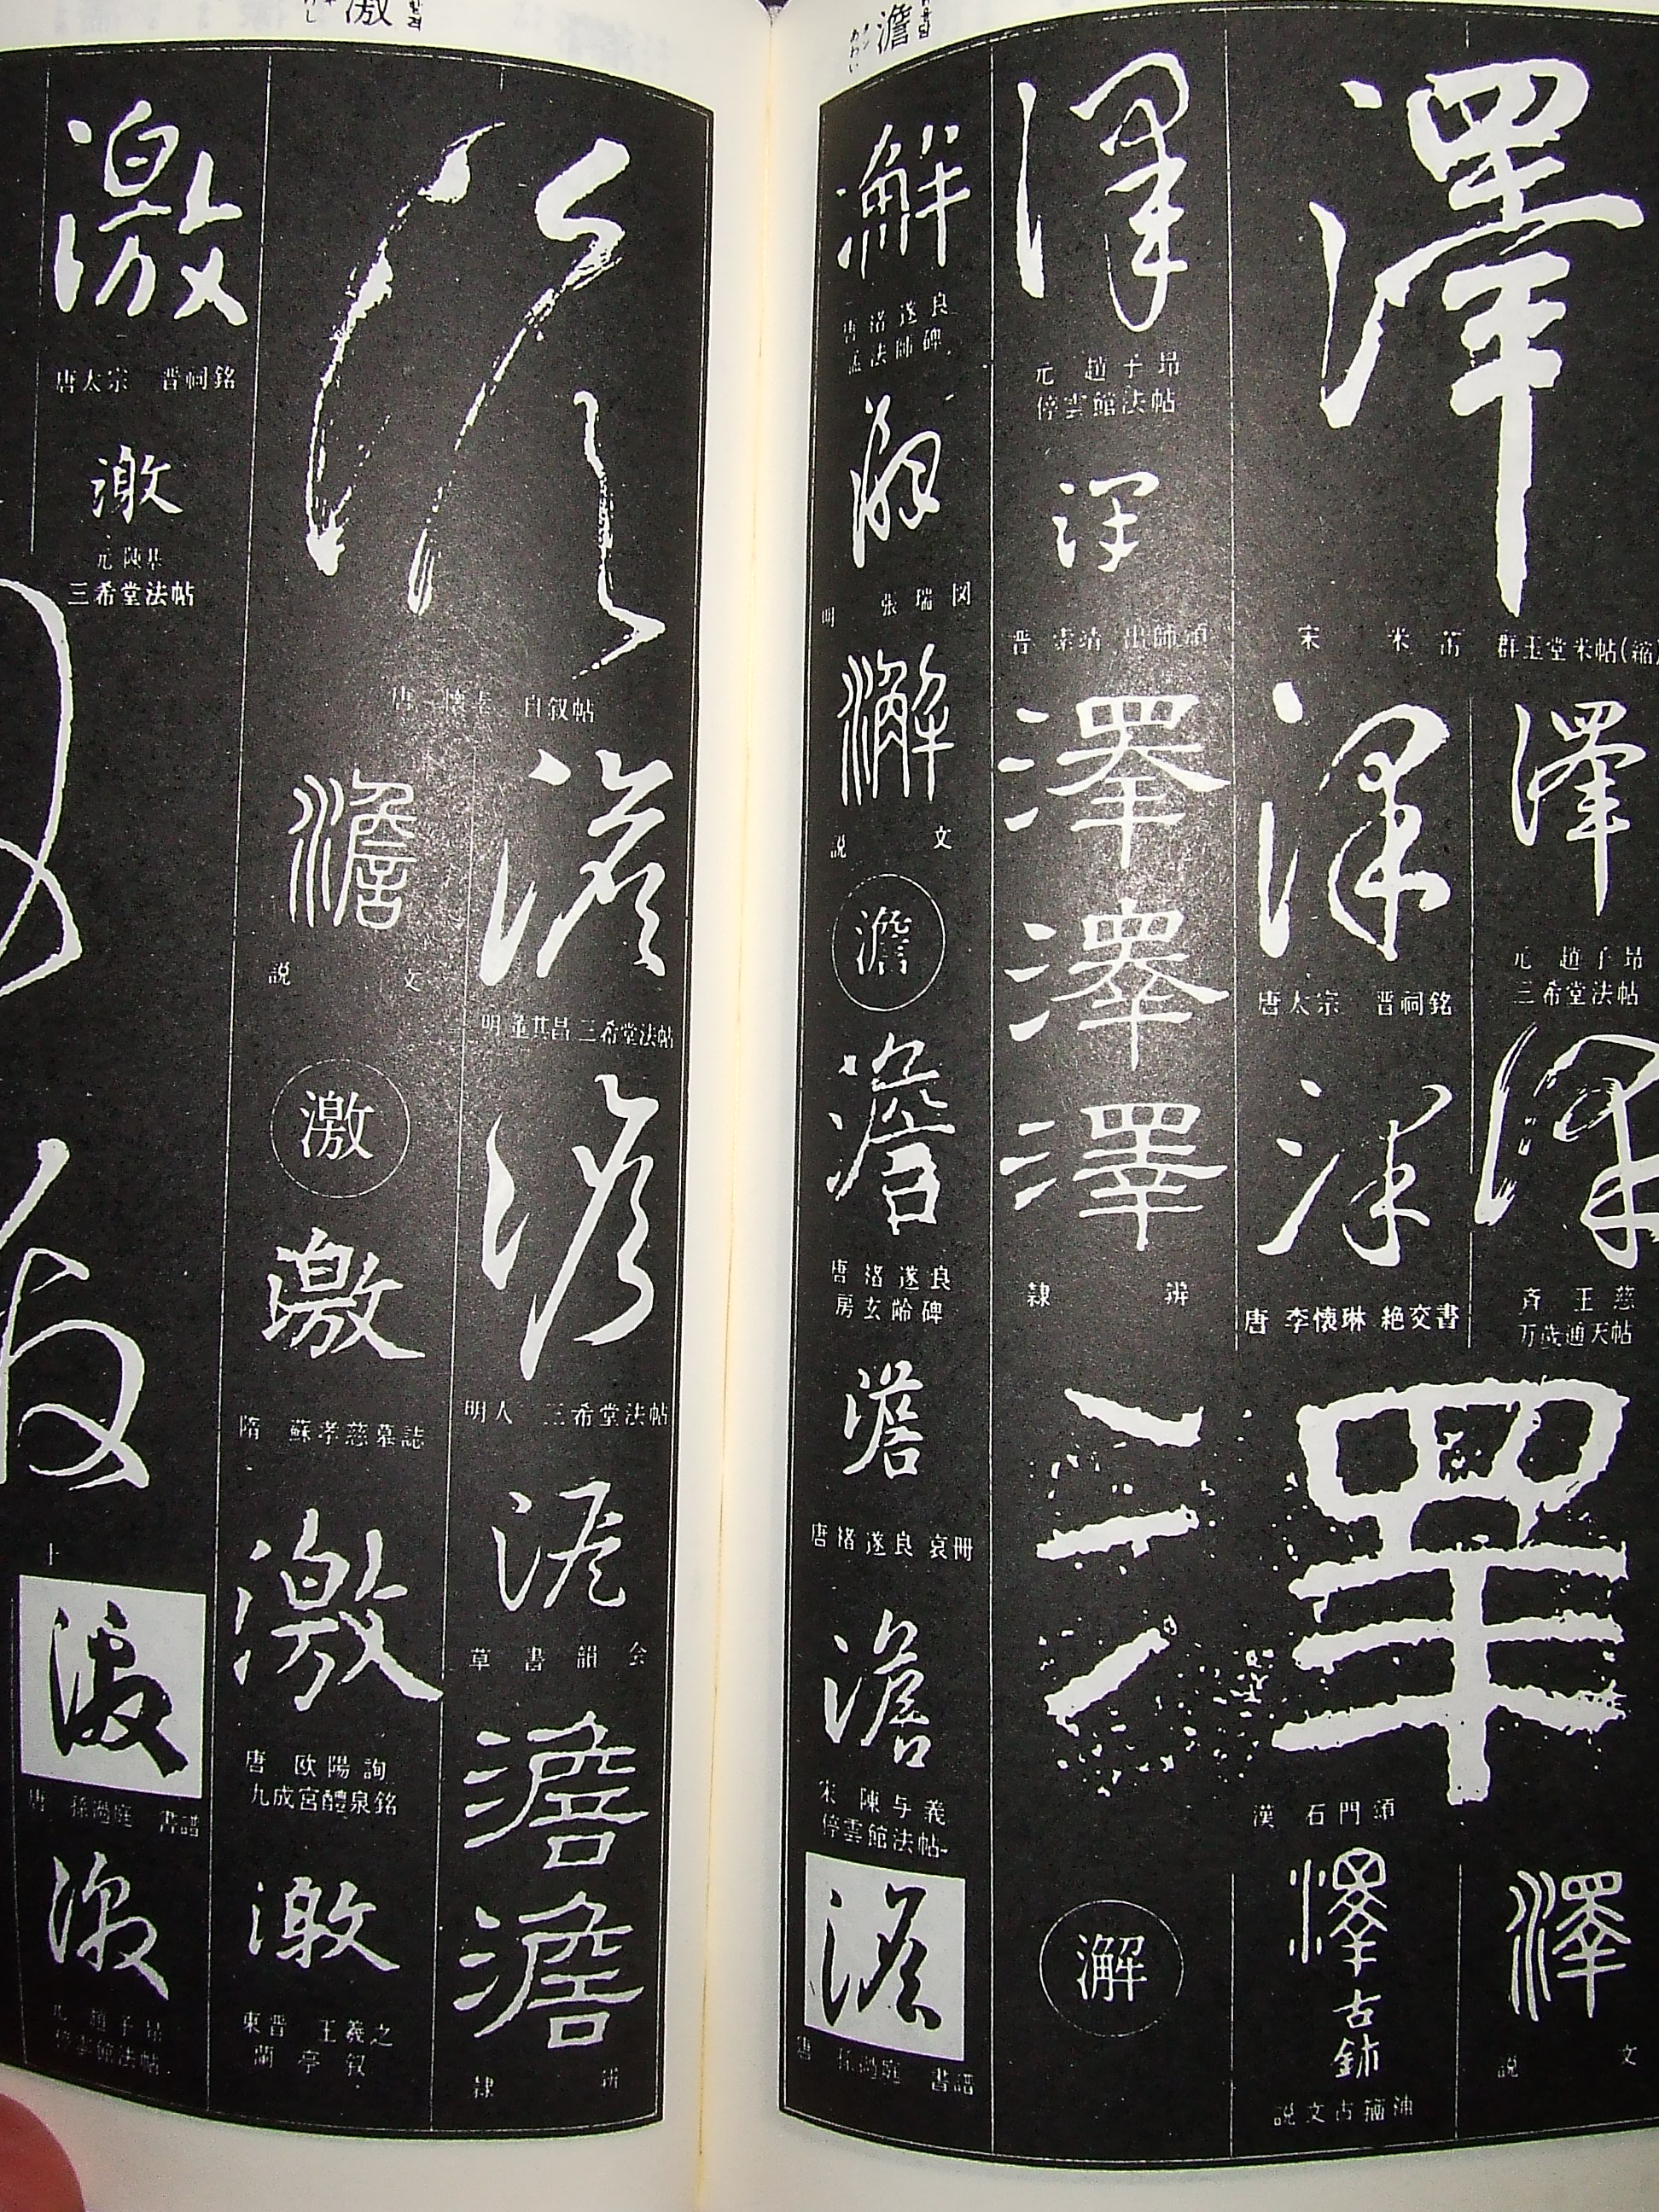 澹
タン
あわい
澤
宋 米芾 群玉堂米帖(縮)
澤
元 趙子昂
三希堂法帖
澤
斉 王慈
万歳通天帖
澤
唐太宗 晋祠銘
澤
唐 李懐琳 絶交書
澤
漢 石門頌
澤
説文
澤
古鉥
説文古籀補
澤
元 趙子昂
停雲館法帖
澤
晋 索靖 出師頌
澤
澤
澤
隷辨
澥
澥
唐 褚遂良
孟法師碑
澥
明 張瑞図
澥
説文
澹
澹
唐 褚遂良
房玄齢碑
澹
唐 褚遂良 哀冊
澹
宋 陳与義
停雲館法帖
澹
唐 孫過庭 書譜
激
澹
唐 懐素 自叙帖
澹
明 董其昌 三希堂法帖
澹
明人 三希堂法帖
澹
草書韻会
澹
澹
隷辨
澹
説文
激
激
隋 蘇孝慈墓誌
激
唐 欧陽詢
九成宮醴泉銘
激
東晋 王羲之
蘭亭叙
激
唐太宗 晋祠銘
激
元 陳基
三希堂法帖
激
唐 孫過庭 書譜
激
元 趙子昂
停雲館法帖